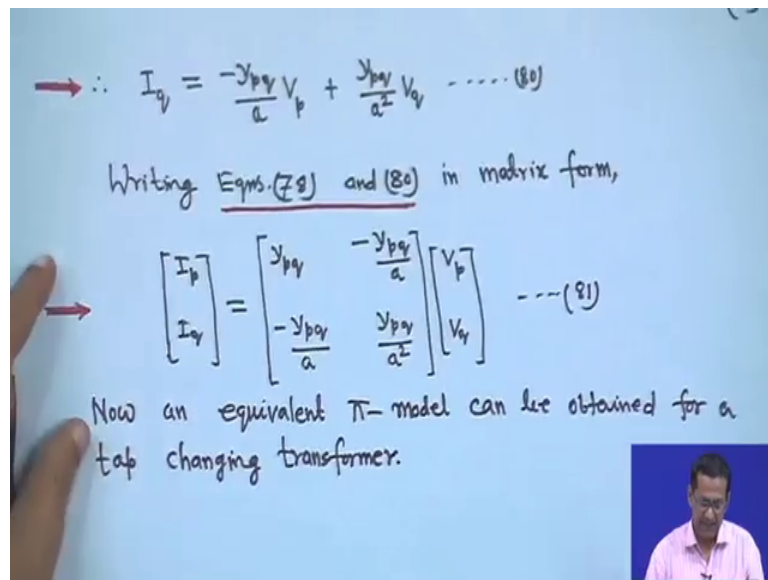 ∴ I_q = -y_pq/a V_p + y_pq/a² V_q ----- (80)
Writing Eqns.(78) and (80) in matrix form,
[I_p; I_q] = [y_pq, -y_pq/a; -y_pq/a, y_pq/a²] [V_p; V_q] ---- (81)
Now an equivalent π- model can be obtained for a
tap changing transformer.